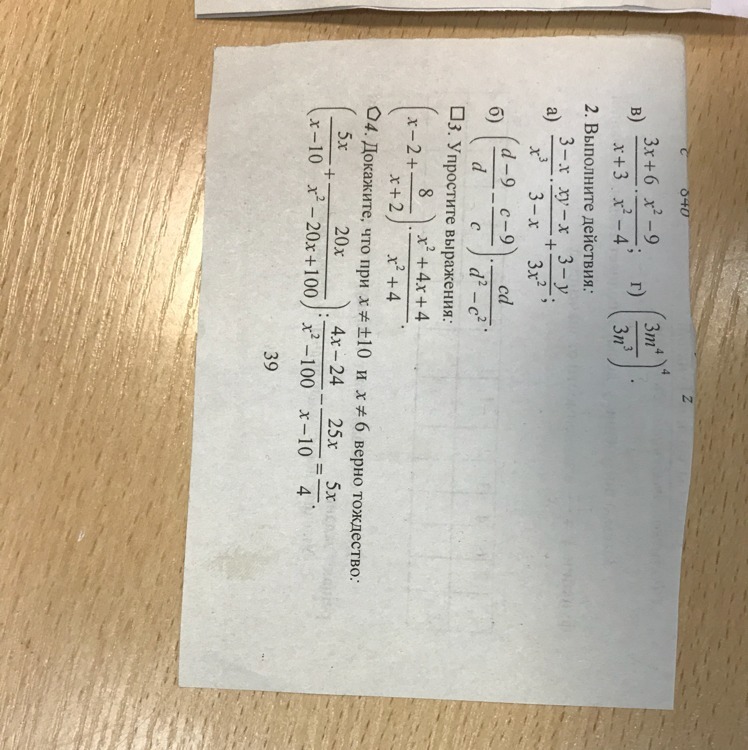 в) (3x+6)/(x+3) · (x²−9)/(x²−4); г) (3m⁴/3n³)⁴.
2. Выполните действия:
а) (3−x)/x³ · (xy−x)/(3−x) + (3−y)/3x²;
б) ((d−9)/d − (c−9)/c) · cd/(d²−c²).
3. Упростите выражения:
(x−2+8/(x+2)) · (x²+4x+4)/(x²+4).
4. Докажите, что при x ≠ ±10 и x ≠ 6 верно тождество:
(5x/(x−10) + 20x/(x²−20x+100)) : (4x−24)/(x²−100) − 25x/(x−10) = 5x/4.
39